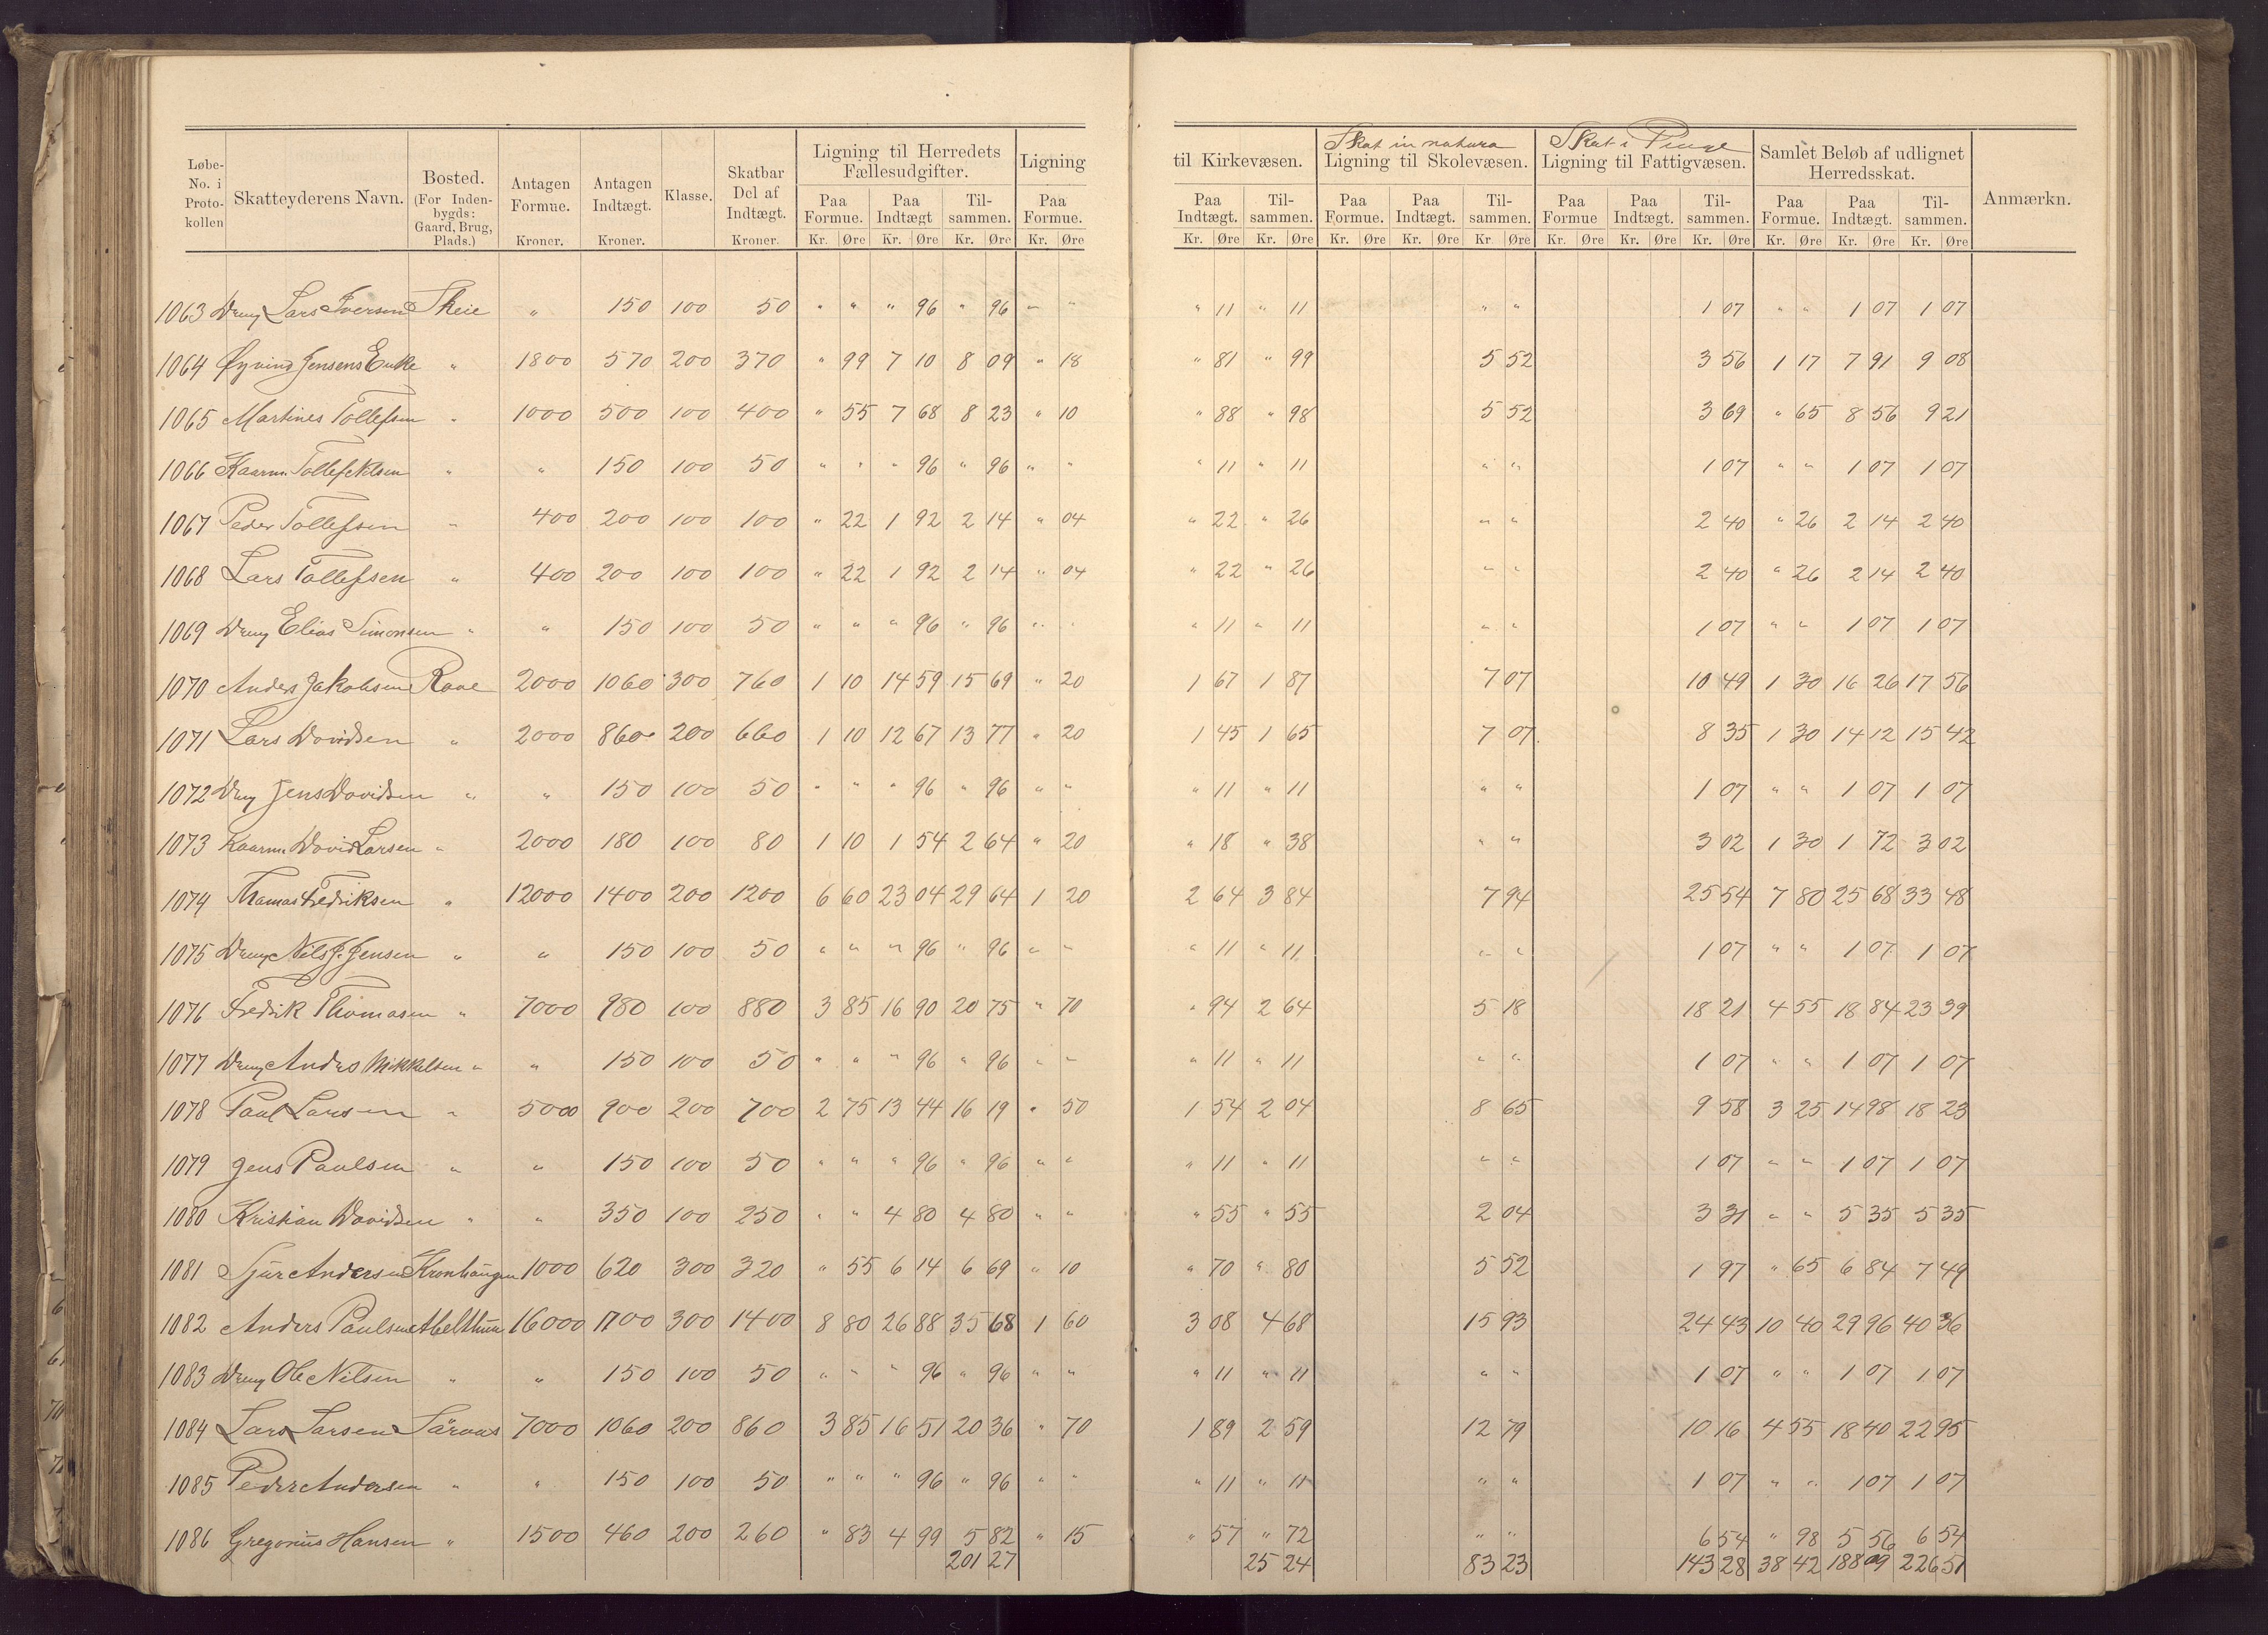 Løbe-No. i Proto-kollen | Skatteyderens Navn. | Bosted. (For Inden-bygds: Gaard, Brug, Plads.) | Antagen Formue. Kroner. | Antagen Indtægt. Kroner. | Klasse. | Skatbar Del af Indtægt. Kroner. | Ligning til Herredets Fællesudgifter. Paa Formue. Kr. Øre | Paa Indtægt Kr. Øre | Til-sammen. Kr. Øre | Ligning Paa Formue. Kr. Øre | til Kirkevæsen. Paa Indtægt. Kr. Øre | Til-sammen. Kr. Øre | Skat in natura Ligning til Skolevæsen. Paa Formue. Kr. Øre | Paa Indtægt. Kr. Øre | Til-sammen. Kr. Øre | Skat i Penge Ligning til Fattigvæsen. Paa Formue Kr. Øre | Paa Indtægt. Kr. Øre | Til-sammen. Kr. Øre | Samlet Beløb af udlignet Herredsskat. Paa Formue. Kr. Øre | Paa Indtægt. Kr. Øre | Til-sammen. Kr. Øre | Anmærkn.
1063 Dreng Lars Iversen Skeie " 150 100 50 " " " 96 " 96 " " " 11 " 11 " " 1 07 " " 1 07 1 07
1064 Øyvind Jensens Enke " 1800 570 200 370 " 99 7 10 8 09 " 18 " 81 " 99 5 52 3 56 1 17 7 91 9 08
1065 Martines Tollefsen " 1000 500 100 400 " 55 7 68 8 23 " 10 " 88 " 98 5 52 3 69 " 65 8 56 9 21
1066 Kaarm. Tollef Nilsen " " 150 100 50 " " " 96 " 96 " " " 11 " 11 " " 1 07 " " 1 07 1 07
1067 Peder Tollefsen " 400 200 100 100 " 22 1 92 2 14 " 04 " 22 " 26 " " 2 40 " 26 2 14 2 40
1068 Lars Tollefsen " 400 200 100 100 " 22 1 92 2 14 " 04 " 22 " 26 " " 2 40 " 26 2 14 2 40
1069 Dreng Elias Simonsen " " 150 100 50 " " " 96 " 96 " " " 11 " 11 " " 1 07 " " 1 07 1 07
1070 Anders Jakobsen Raae 2000 1060 300 760 1 10 14 59 15 69 " 20 1 67 1 87 7 07 10 49 1 30 16 26 17 56
1071 Lars Davidsen " 2000 860 200 660 1 10 12 67 13 77 " 20 1 45 1 65 7 07 8 35 1 30 14 12 15 42
1072 Dreng Jens Davidsen " " 150 100 50 " " " 96 " 96 " " " 11 " 11 " " 1 07 " " 1 07 1 07
1073 Kaarm. David Larsen " 2000 180 100 80 1 10 1 54 2 64 " 20 " 18 " 38 " " 3 02 1 30 1 72 3 02
1074 Thomas Fredriksen " 12000 1400 200 1200 6 60 23 04 29 64 1 20 2 64 3 84 7 94 25 54 7 80 25 68 33 48
1075 Dreng Nils J. Jensen " " 150 100 50 " " " 96 " 96 " " " 11 " 11 " " 1 07 " " 1 07 1 07
1076 Fredrik Thomasen " 7000 980 100 880 3 85 16 90 20 75 " 70 " 94 2 64 5 18 18 21 4 55 18 84 23 39
1077 Dreng Anders Mikkelsen " " 150 100 50 " " " 96 " 96 " " " 11 " 11 " " 1 07 " " 1 07 1 07
1078 Paul Larsen " 5000 900 200 700 2 75 13 44 16 19 " 50 1 54 2 04 8 65 9 58 3 25 14 98 18 23
1079 Jens Paulsen " " 150 100 50 " " " 96 " 96 " " " 11 " 11 " " 1 07 " " 1 07 1 07
1080 Kristian Davidsen " " 350 100 250 " " 4 80 4 80 " " " 55 " 55 2 04 3 31 " " 5 35 5 35
1081 Sjur Andersen Kronhaugen 1000 620 300 320 " 55 6 14 6 69 " 10 " 70 " 80 5 52 1 97 " 65 6 84 7 49
1082 Anders Paulsen 16000 1700 300 1400 8 80 26 88 35 68 1 60 3 08 4 68 15 93 24 43 10 40 29 96 40 36
1083 Dreng Ole Nilsen " " 150 100 50 " " " 96 " 96 " " " 11 " 11 " " 1 07 " " 1 07 1 07
1084 Lars Larsen 7000 1060 200 860 3 85 16 51 20 36 " 70 1 89 2 59 12 79 10 16 4 55 18 40 22 95
1085 Peder Andersen " " 150 100 50 " " " 96 " 96 " " " 11 " 11 " " 1 07 " " 1 07 1 07
1086 Gregorius Hansen " 1500 460 200 260 " 83 4 99 5 82 " 15 " 57 " 72 " " 6 54 " 98 5 56 6 54
201 27 25 24 83 23 143 28 38 42 188 09 226 51